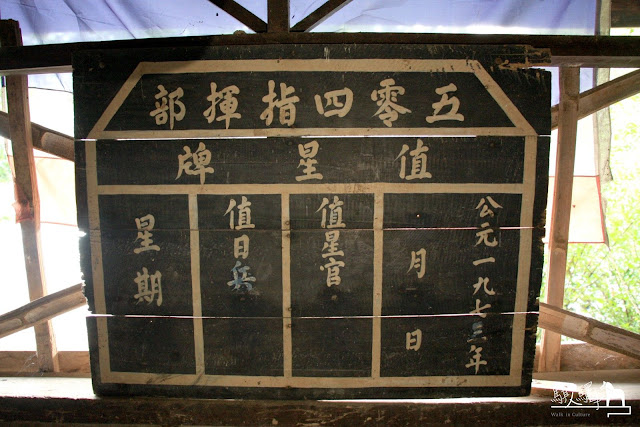 五零四指揮部
值星牌
公元一九七三年
月日
值星官
值日兵
星期
Walk in Culture